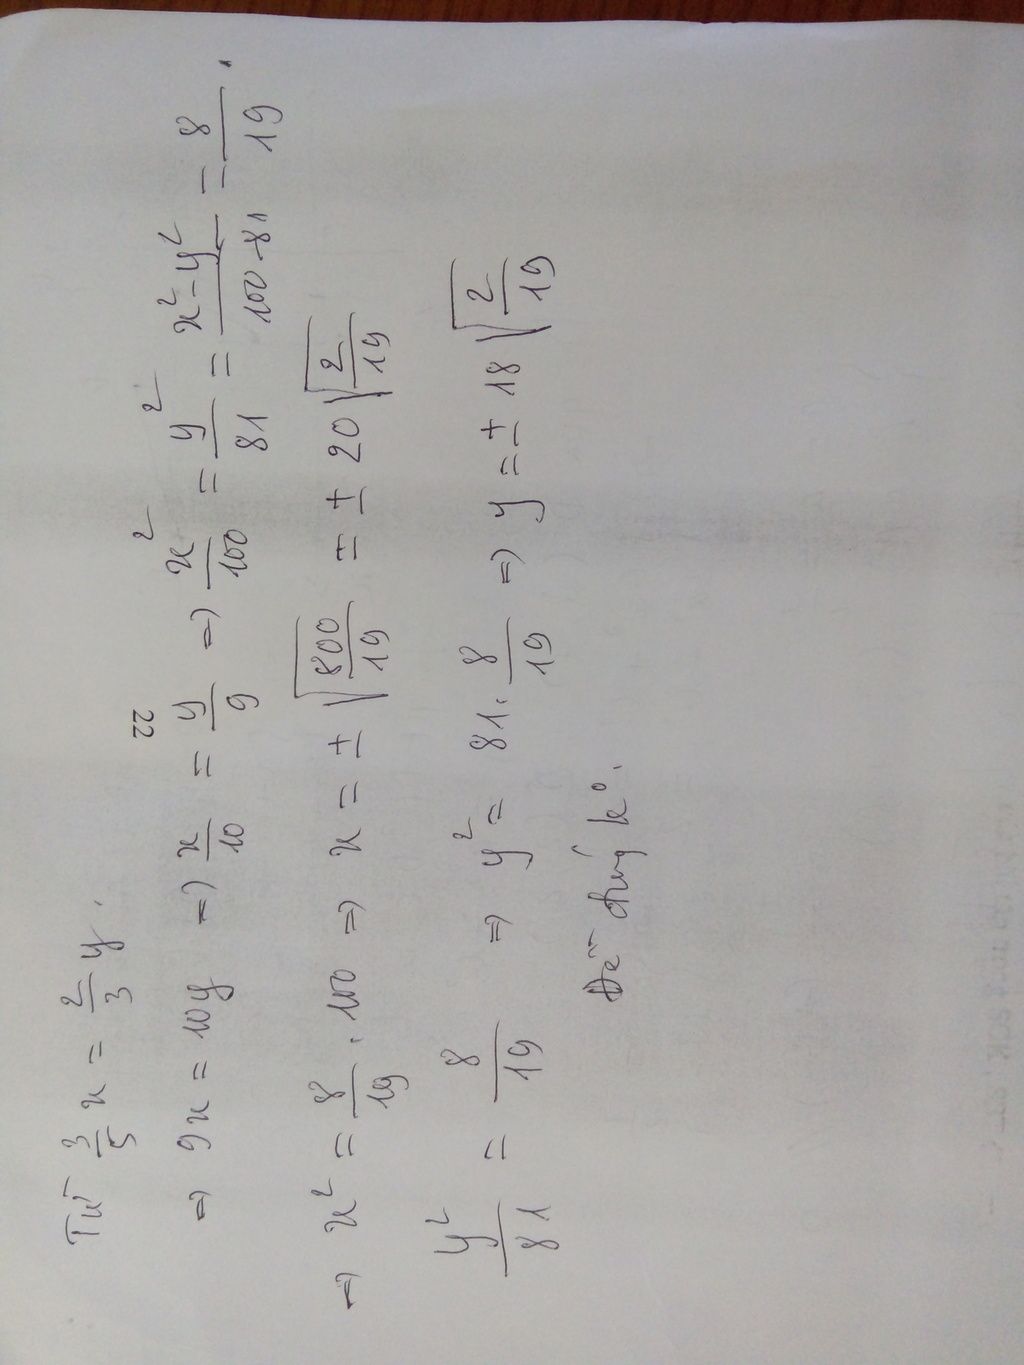 Từ 3/5 x = 2/3 y.
22
⇒ 9x = 10y ⇒ x/10 = y/9 ⇒ x²/100 = y²/81 = x²-y²/100-81 = 8/19.
⇒ x² = 8/19 . 100 ⇒ x = ± √800/19 = ± 20 √2/19
y²/81 = 8/19 ⇒ y² = 81. 8/19 ⇒ y = ± 18 √2/19
Đề đúng ko.